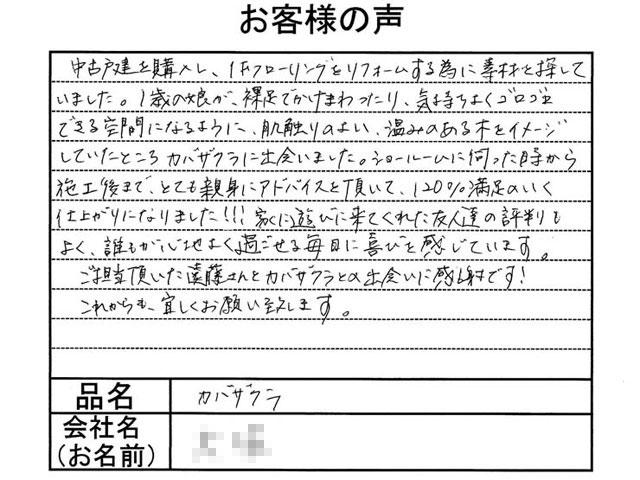 お客様の声
中古戸建を購入し、1Fフローリングをリフォームする為に素材を探して
いました。1歳の娘が、裸足でかけまわったり、気持ちよくゴロゴロ
できる空間になるように、肌触りのよい、温みのある木をイメージ
していたところカバザクラに出会いました。ショールームに伺った時から
施工後まで、とても親身にアドバイスを頂いて、120%満足のいく
仕上がりになりました!!!家に遊びに来てくれた友人達の評判も
よく、誰もが心地よく過ごせる毎日に喜びを感じています。
ご担当頂いた遠藤さんとカバザクラとの出会いに感謝です!
これからも、宜しくお願い致します。
品名 カバザクラ
会社名
(お名前)